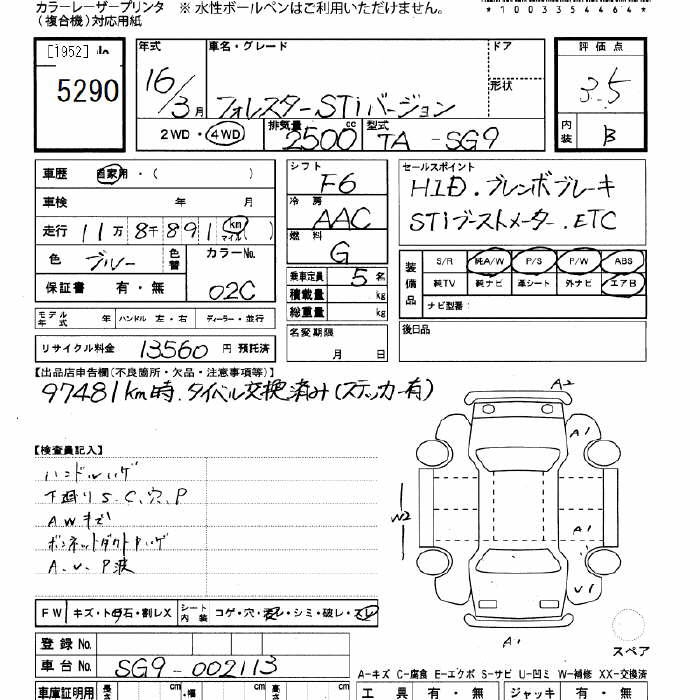 カラーレーザープリンタ ※ 水性ボールペンはご利用いただけません。
(複合機)対応用紙
*1003354464*
[1952]
5290
年式 16/3月
車名・グレード フォレスターSTiバージョン
ドア
形状
2WD・4WD
排気量 2500 cc
型式 TA-SG9
評価点 3.5
内装 B
車歴 自家用・( )
車検 年 月
走行 11万8千891 km マイル( )
色 ブルー 色替
カラーNo. 02C
保証書 有・無
シフト F6
冷房 AAC
燃料 G
乗車定員 5名
積載量 kg
総重量 kg
セールスポイント
HID.ブレンボブレーキ
STiブーストメーター.ETC
装備品
S/R 純A/W P/S P/W ABS
純TV 純ナビ 革シート 外ナビ エアB
ナビ型番:
モデル年式 年 ハンドル 左・右 ディーラー・並行
名変期限 月 日
後日品
リサイクル料金 13560 円 預託済
【出品店申告欄(不良箇所・欠品・注意事項等)】
97481km時.タイベル交換済み(ステッカー有)
【検査員記入】
ハンドルハゲ
下回りS.C.穴.P
AWキズ
ボンネットダクトPハゲ
A.U.P波
A2
A1
W2
A1
U1
A1
スペア
FW キズ・ト石・割レX
シート内装 コゲ・穴・・シミ・破レ・スレ
登録No.
車台No. SG9-002113
A-キズ C-腐食 E-エクボ S-サビ U-凹ミ W-補修 XX-交換済
車庫証明用 cm ・幅 cm 高 cm
工具 有・無 ジャッキ 有・無